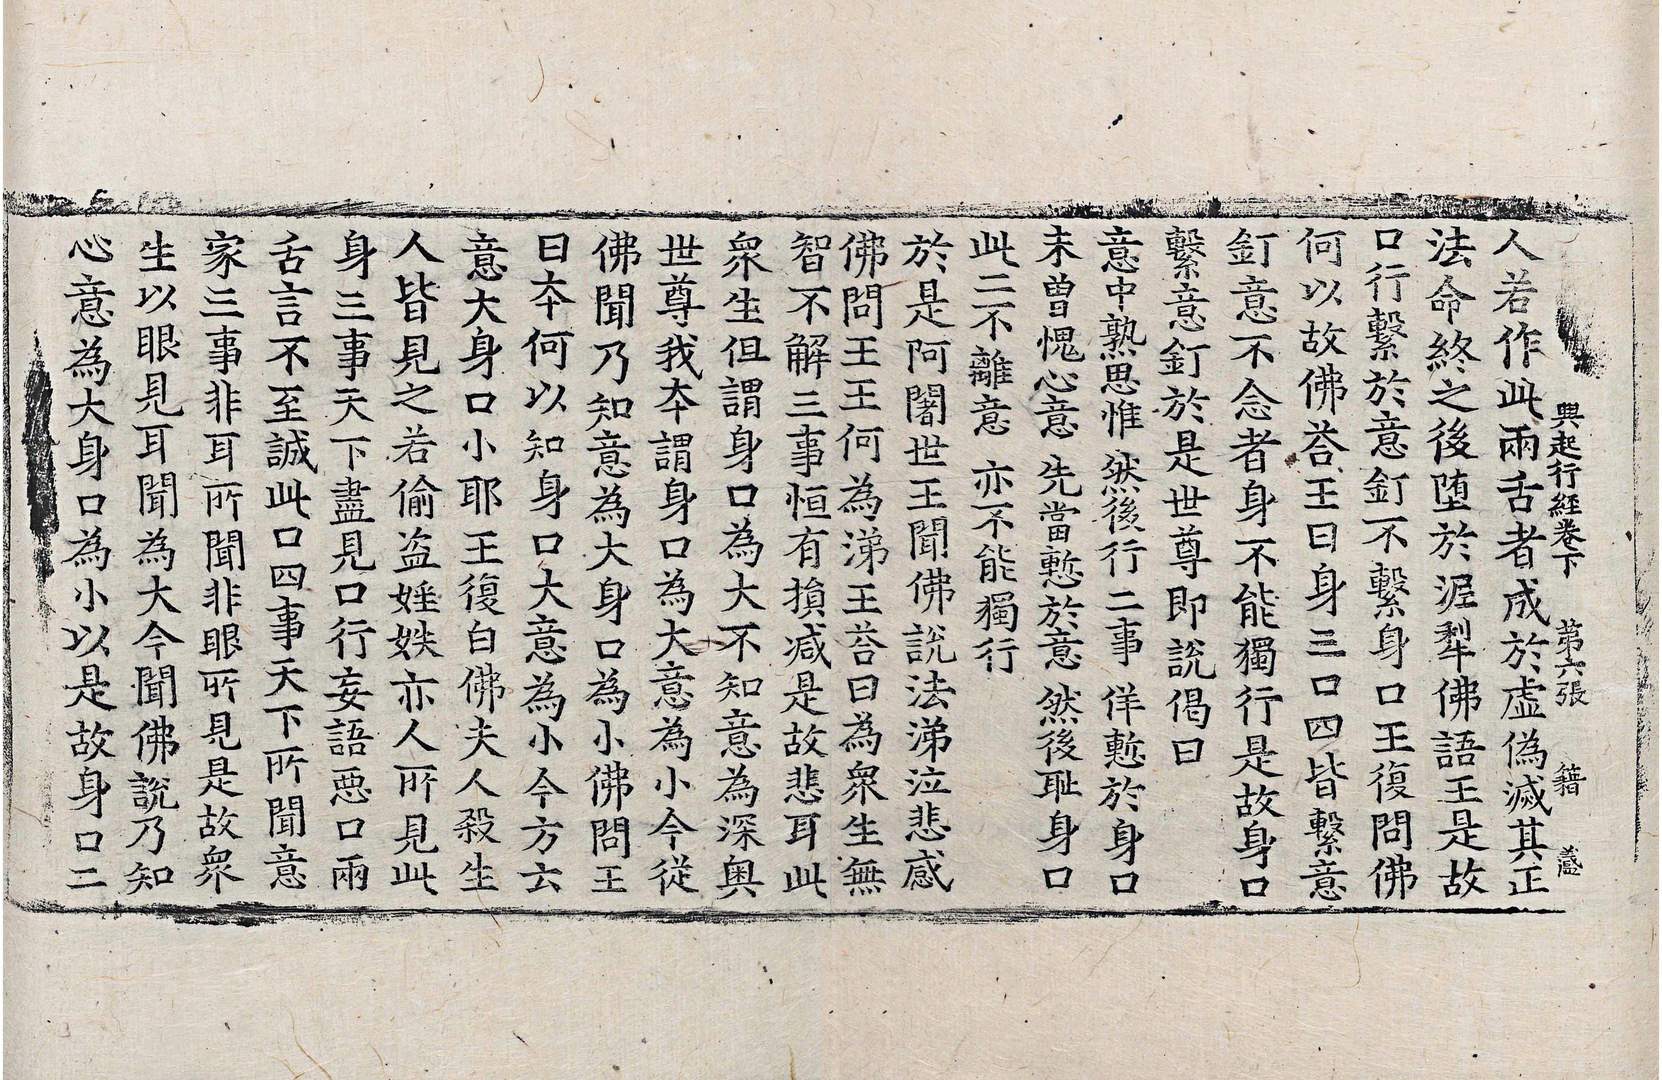 興起行經卷下 第六張 籍 盖
人若作此兩舌者成於虛偽滅其正
法命終之後墮於泥犁佛語王是故
口行繫於意釘不繫身口王復問佛
何以故佛荅王曰身三口四皆繫意
釘意不念者身不能獨行是故身口
繫意釘於是世尊即說偈曰
意中熟思惟 然後行二事 佯慙於身口
未曾愧心意 先當慙於意 然後耻身口
此二不離意 亦不能獨行
於是阿闍世王聞佛說法涕泣悲感
佛問王王何為涕王荅曰為衆生無
智不解三事恒有損減是故悲耳此
衆生但謂身口為大不知意為深奥
世尊我夲謂身口為大意為小今從
佛聞乃知意為大身口為小佛問王
曰夲何以知身口大意為小今方云
意大身口小耶王復白佛夫人殺生
人皆見之若偷盗婬妷亦人所見此
身三事天下盡見口行妄語惡口兩
舌言不至誠此口四事天下所聞意
家三事非耳所聞非眼所見是故衆
生以眼見耳聞為大今聞佛說乃知
心意為大身口為小以是故身口二